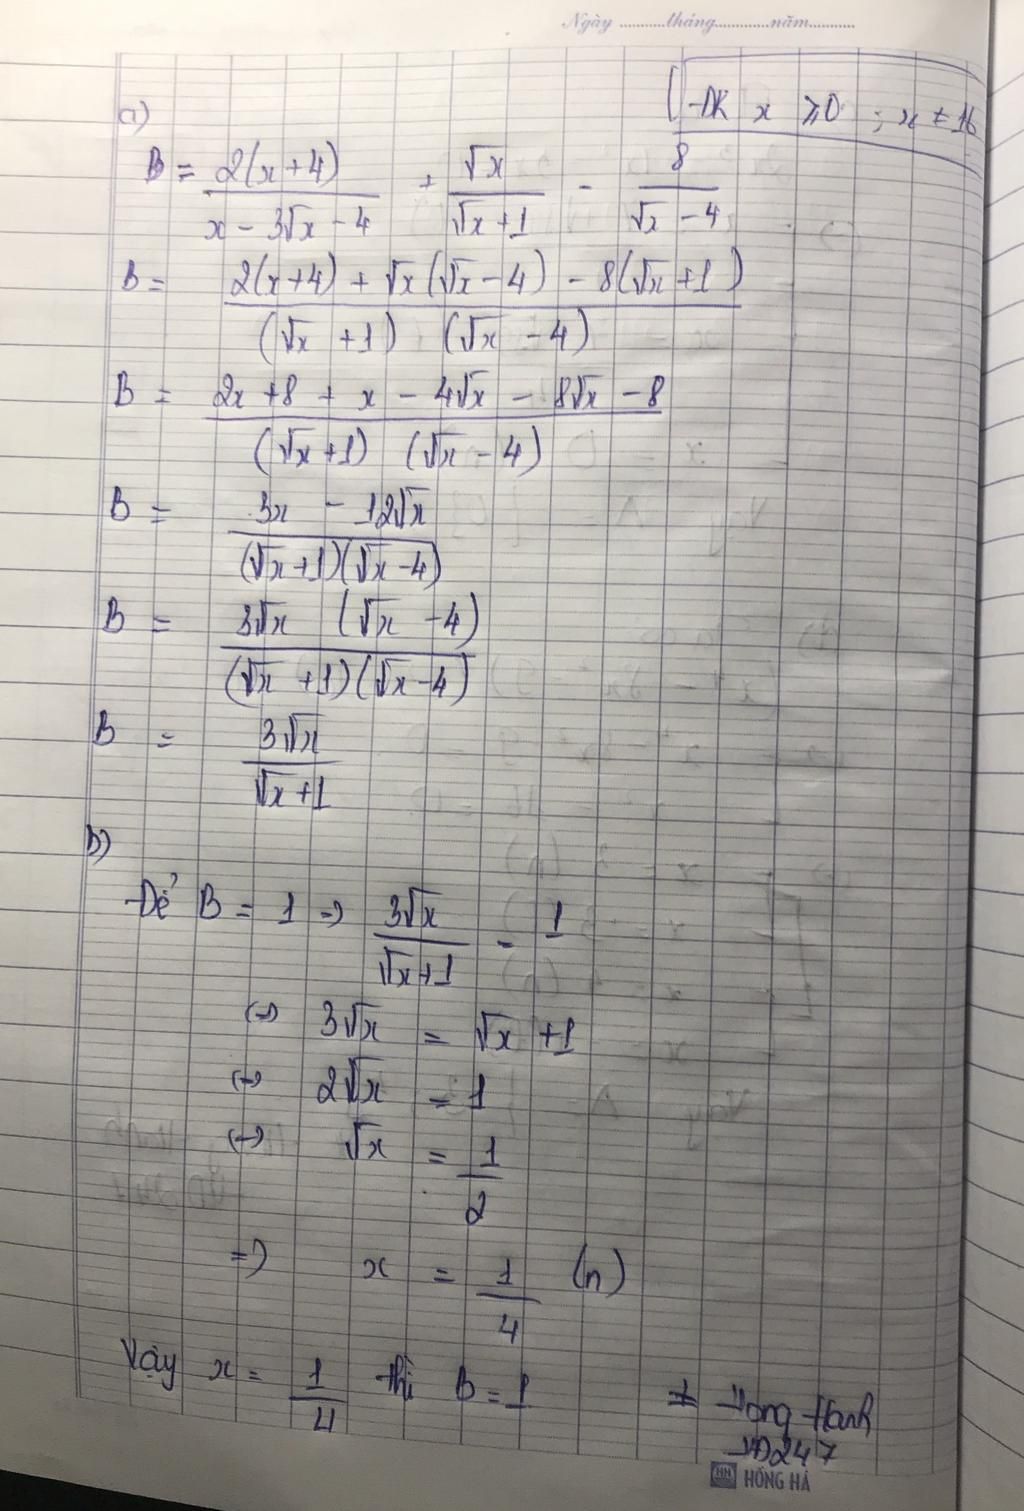 Ngày ...........tháng.............năm...........
[ĐK x ⩾0 ; x ≠ 16
a)
B = 2(x+4)/(x - 3√x - 4) + √x/(√x+1) - 8/(√x - 4)
B = (2(x+4) + √x(√x - 4) - 8(√x+1))/((√x +1) (√x - 4))
B = (2x +8 + x - 4√x - 8√x - 8)/((√x+1) (√x - 4))
B = (3x - 12√x)/((√x+1)(√x-4))
B = (3√x (√x - 4))/((√x +1)(√x-4))
B = 3√x/(√x+1)
b)
Để B = 1 => 3√x/(√x+1) = 1
<=> 3√x = √x +1
<=> 2√x = 1
<=> √x = 1/2
=> x = 1/4 (n)
Vậy x = 1/4 thì B = 1
HỒNG HÀ